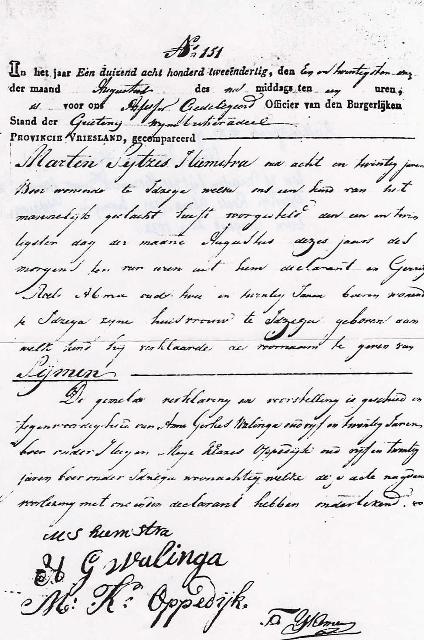 No 151
In het jaar Een duizend acht honderd tweeëndertig, den Een en twintigsten
der maand Augustus des na middags ten een uren,
is voor ons Officier van den Burgerlijken
Stand der Grieteny Wymbritseradeel
PROVINCIE VRIESLAND, gecompareerd
Marten Sytzes Hiemstra acht en twintig jaren
Boer wonende te Idzega welke ons een kind van het
mannelijk geslacht heeft voorgesteld den een en twin
tigster dag der maand Augustus dezes jaars des
morgens ten vier uren uit hem declarant en
Roels Abma oud twee en twintig Jaren boerin wonend
te Idzega zyne huisvrouw te Idzega geboren aan
welk kind hij verklaarde de voornaam te geven van
Sijmen
De gemelde verklaring en voorstelling is geschied in
tegenwoordigheid van Anne Gerkes Walinga oud vijf en twintig Jaren
boer onder Klazes Oppedijk oud vijf en twintig
jaren boer onder Idzega woonachtig welke deze acte na gedane
voorlezing met ons en den declarant hebben onderteekend.
M S Hiemstra
A G Walinga
M: K: Oppedijk